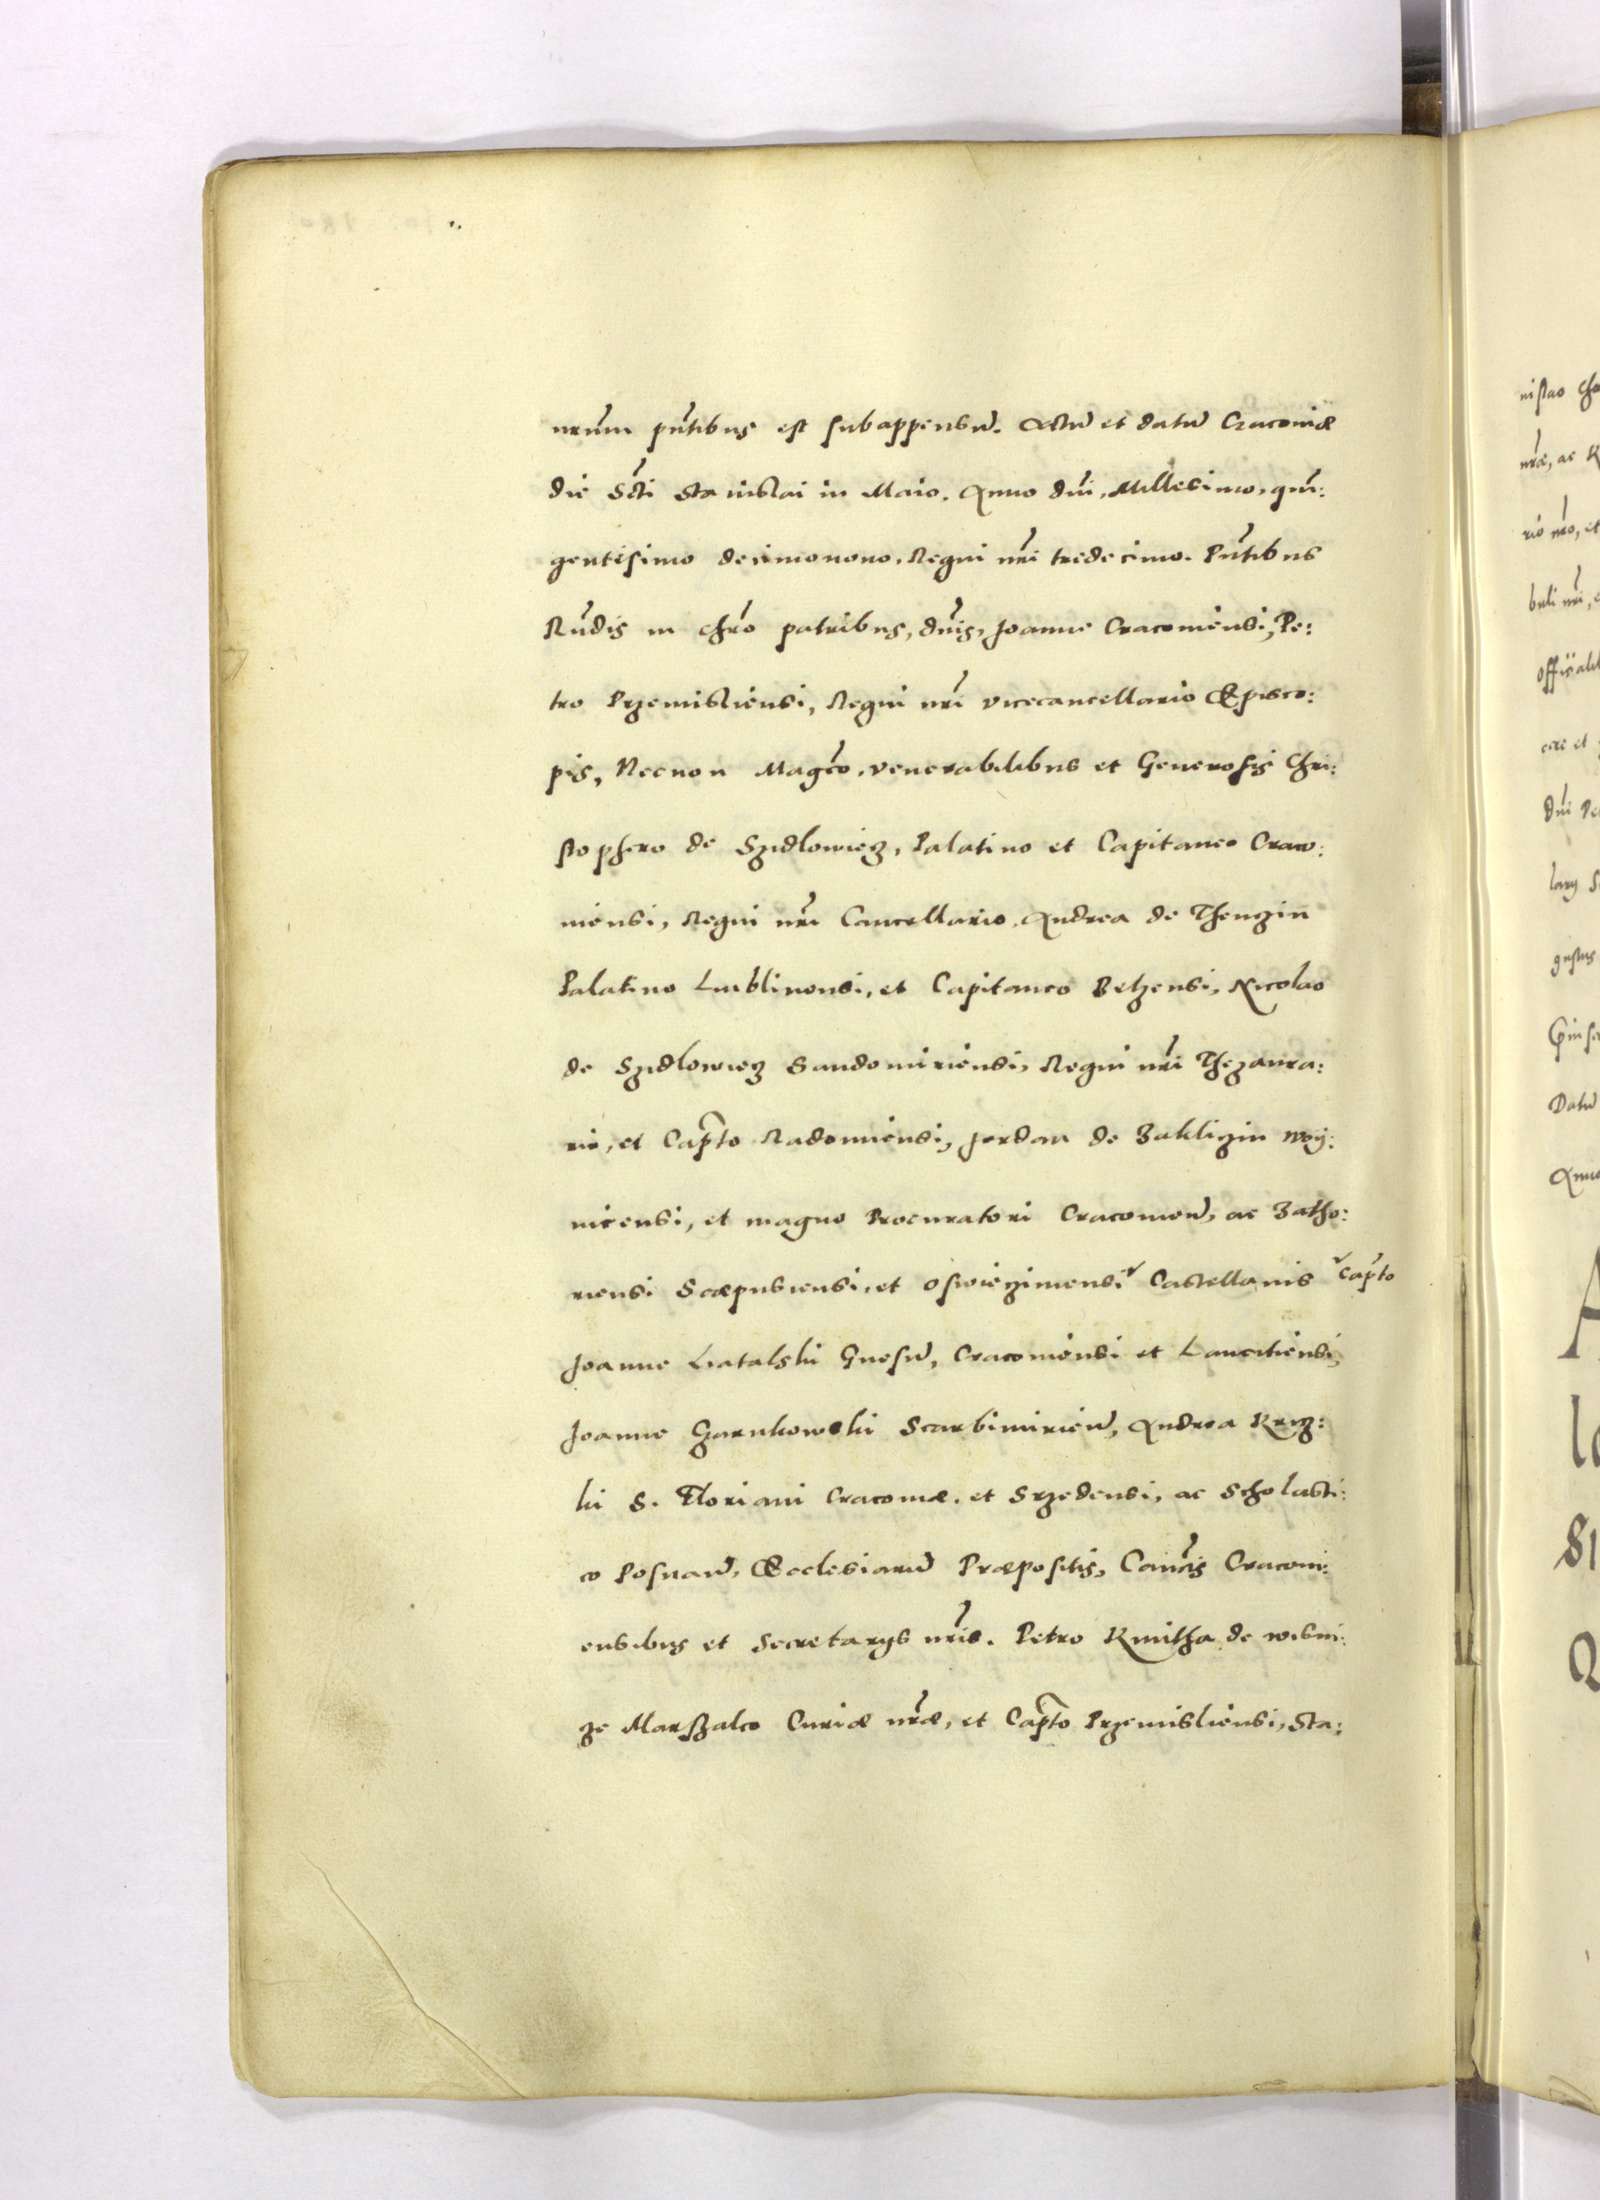 nrũm pñtibus est subappensũ. Actũ et datũ Cracoviæ
die Scti Stanislai in Maio. Anno dñi, Millesimo, quin:
gentesimo decimonono, Regni nri tredecimo. Pñtibus
Rñdis in chro patribus, dñis, Joanne Cracoviensi, Pe:
tro Przemisliensi, Regni nri vicecancellario Episco:
pis, Necnon Magco, venerabilibus et Generosis Chri:
stophero de Szidlowiecz, Palatino et Capitaneo Craco:
viensi, Regni nri Cancellario, Andrea de Thenczin
Palatino Lublinensi, et Capitaneo Belzensi, Nicolao
de Szidlowiecz Sandomiriensi, Regni nri Thezaura:
rio, et Capto Radomiensi, Jordan de Zakliczin woy:
nicensi, et magno Procuratori Cracovieñ, ac Zatho:
riensi Scepusiensi, et Oswieczimensi Castellanis Capto
Joanne Latalski Gnesñ, Cracoviensi et Lanciciensi,
Joanne Czarnkowski Scarbimirieñ, Andrea Kricz:
ki S. Floriani Cracoviæ, et Srzedensi, ac Scholasti:
co Posnañ, Ecclesiarũ Præpositis, Cancis Cracovi:
ensibus et Secretarys nris. Petro Kmitha de wisni:
ze Marszalco Curiæ nræ, et Capto Przemisliensi, Sta:
nislao
nræ, ac
rio nro, et
buli nri,
cere et
Dñi
Datũ
Anno